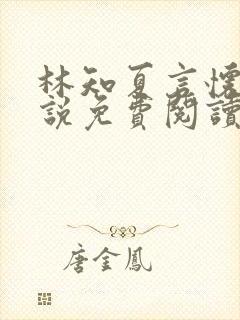 林知夏言懷
說免費閱讀
唐金鳳